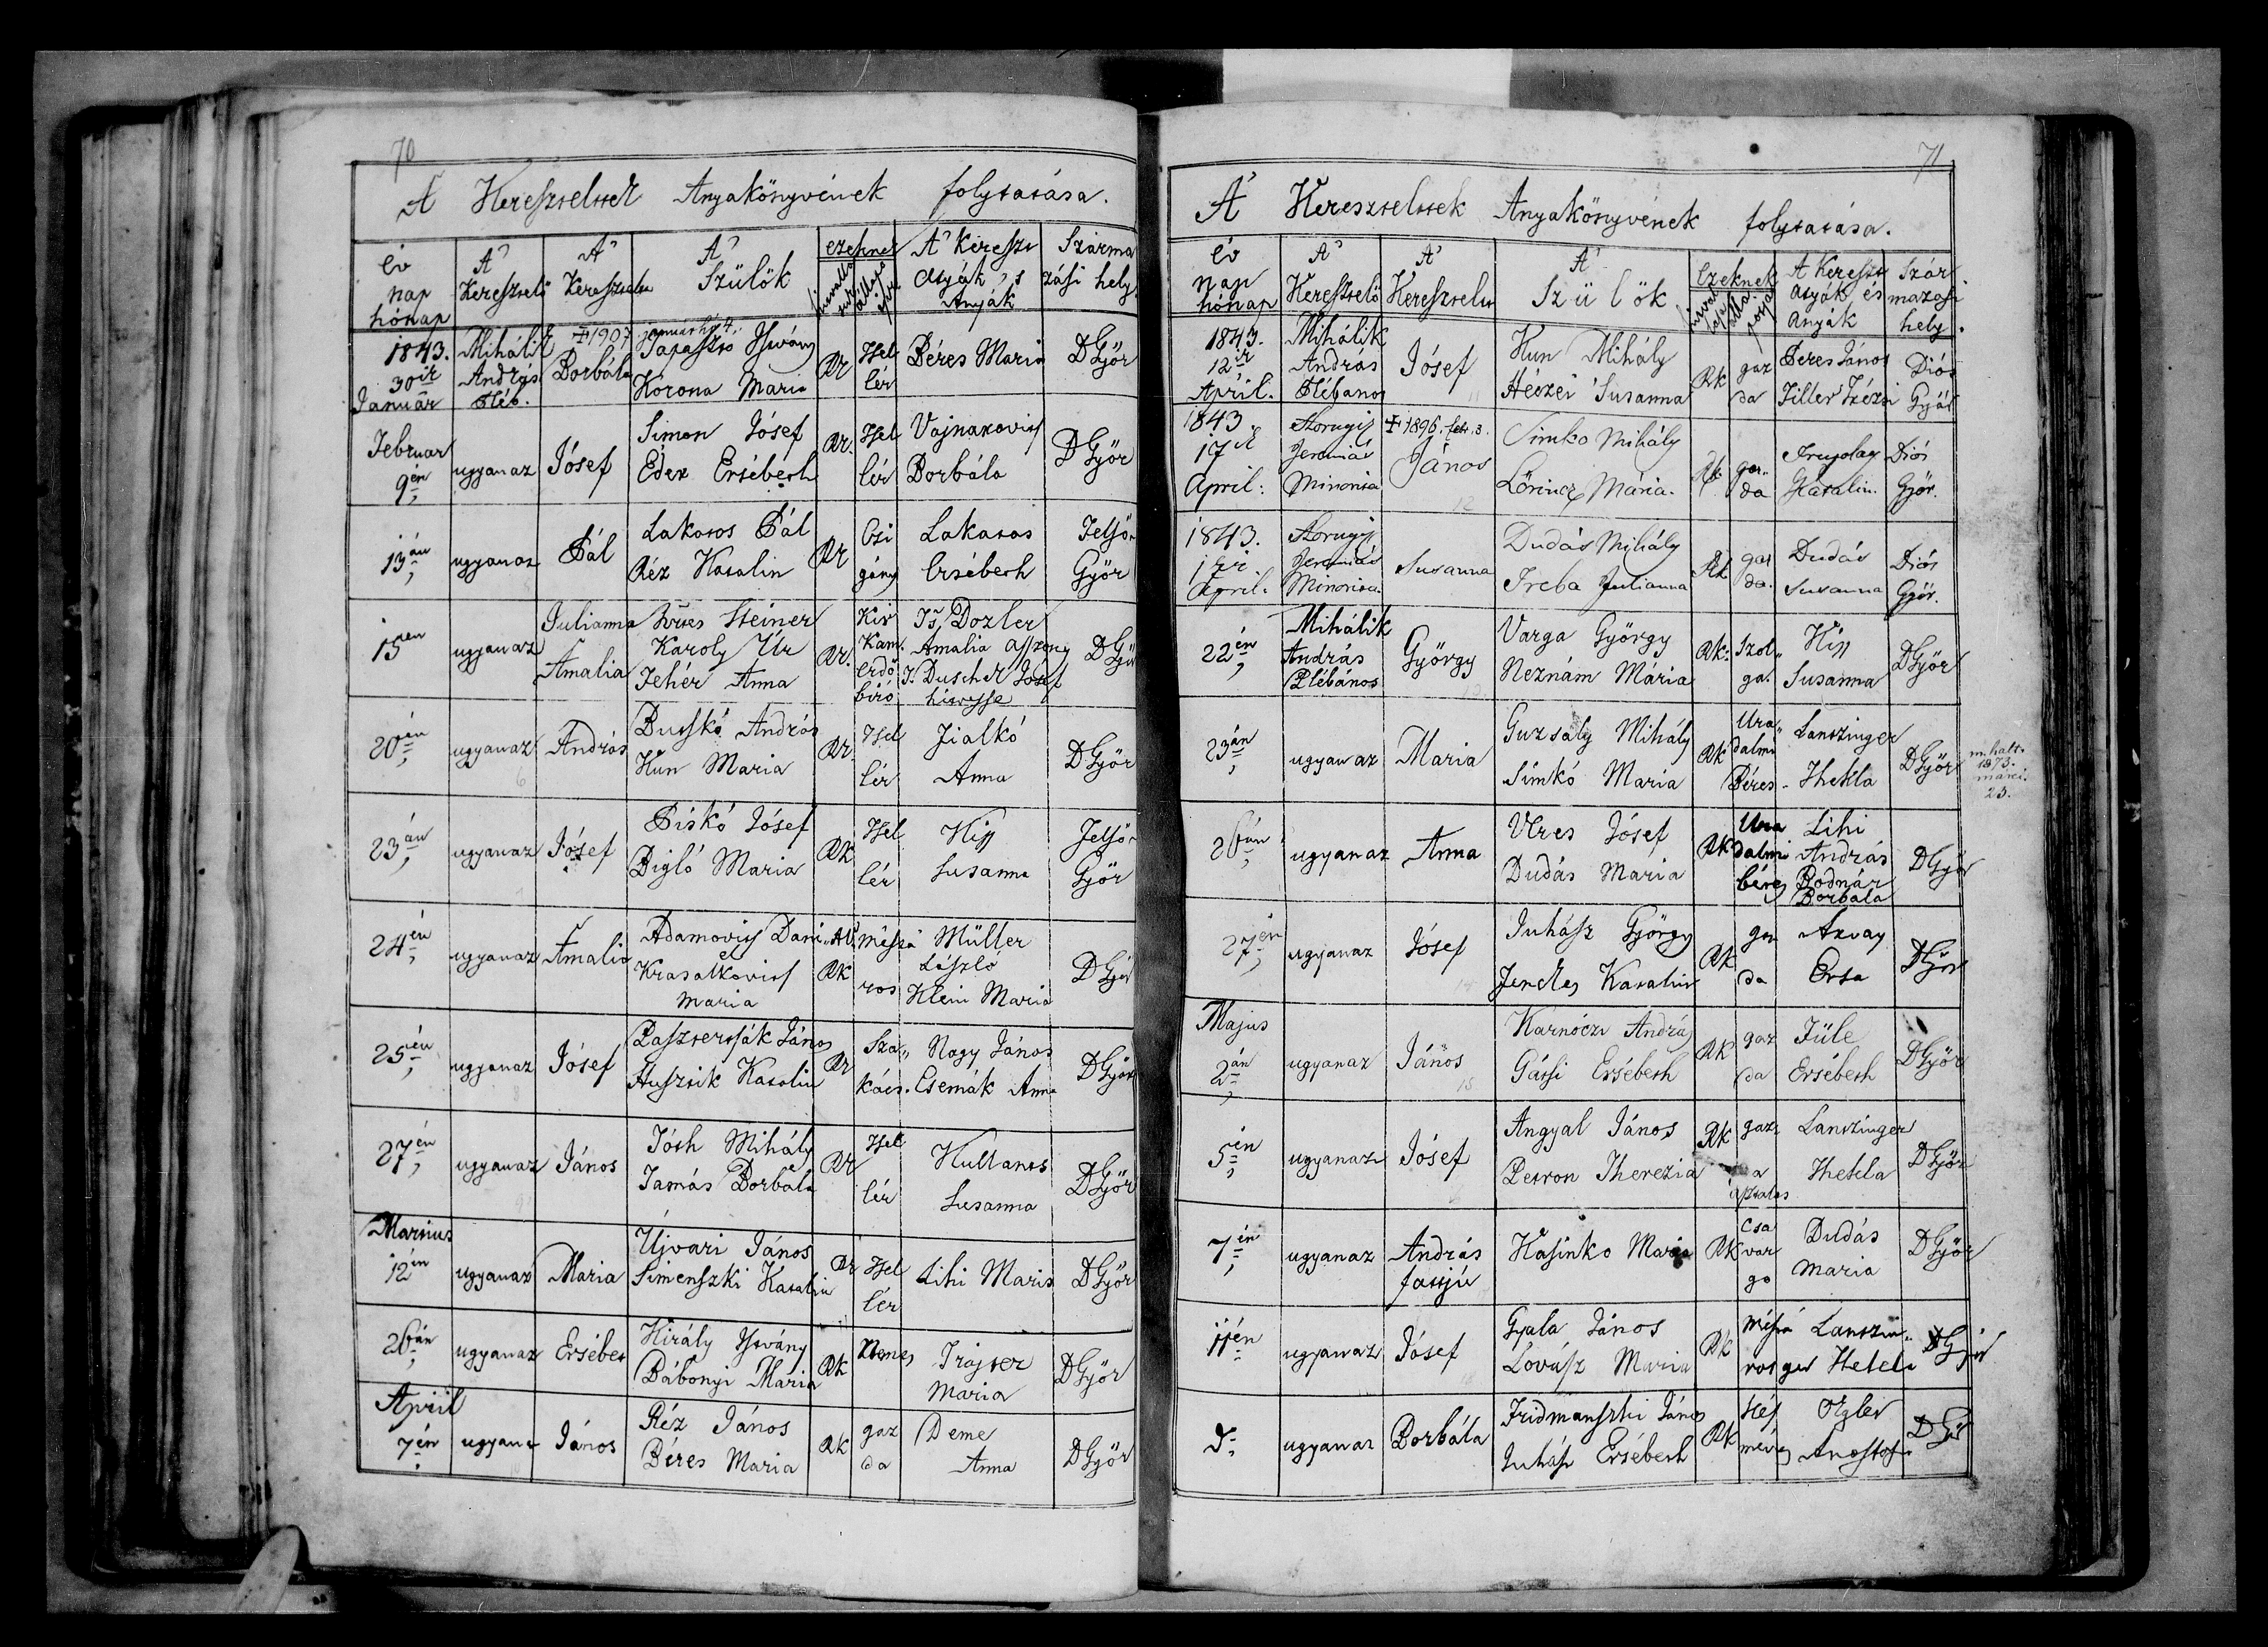 70
A' Keresztelttek Anyakönyvének folytatása.
év nap hónap
A' Keresztelő
A' Keresztelt
A' Szülők
ezeknek
A' Kereszt Atyák, s Anyák
Szárma zási hely
1843. 30ik Január
Mihálik András Pléb.
✝ 1907 január hó 4.
Borbála
Tapasztó István
Korona Maria
Rk
Zsel lér
Béres Maria
DGyőr
Februar 9én
ugyanaz
Jósef
Simon Jósef
Éder Ersébeth
Rk.
Zsel lér
Vojnarovits Borbála
DGyőr
13án
ugyanaz
Pál
Lakatos Pál
Réz Katalin
Rk
Czi gány
Lakatos Ersébeth
Felső Győr
15én
ugyanaz
Julianna Amalia
Steiner Karoly Úr
Fehér Anna
Rk.
Kir Kam. erdő biró
Dozler Amalia Asszony
T. Duschek Jósef hitvesse
DGyőr
20án
ugyanaz
András
Butskó András
Kun Maria
Rk.
Zsel lér
Fialkó Anna
DGyőr
6
23án
ugyanaz
Jósef
Piskó Jósef
Bigló Maria
Rk
Zsel lér
Kiss Susanna
Felső Győr
24én
ugyanaz
Amalia
Adamovits Dani el
Krasalkovits Maria
Rk
mészá ros
Müller László
Klein Maria
DGyőr
25én
ugyanaz
Jósef
Paszternják János
Huszsik Katalin
Rk
Sza kács.
Nagy János
Csemák Anna
DGyőr
8
27én
ugyanaz
János
Tóth Mihály
Tamás Borbála
Rk
Zsel lér
Kultants Susanna
DGyőr
9
Martius 12én
ugyanaz
Maria
Újvari János
Simenszki Katalin
Rk
Zsel lér
Lihi Maria
DGyőr
26án
ugyanaz
Ersébet
Király István
Bábonyi Maria
Rk
Nemes
Trajter Maria
DGyőr
April 7én
ugyanaz
János
Réz János
Béres Maria
Rk
gaz da
Deme Anna
DGyőr
71
A' Keresztelttek Anyakönyvének folytatása.
év nap hónap
A' Keresztelő
A' Keresztelt
A' Szülők
Ezeknek
A Kereszt atyák és anyák
Szár mazási hely.
1843. 12ik April.
Mihálik András Plébanos
Jósef
Kun Mihály
Hészei Susanna
Rk
gaz da
Beres János
Tiller Trézsi
Diós Győr
11
1843 17ik April.
Jeremiás Minorita
✝ 1896. febr. 3.
János
Simko Mihály
Lőrincz Mária.
Rk
gaz da
Katalin.
Diós Győr.
12
1843. April.
Jeremiás Minorita.
Susanna
Dudás Mihály
Treba Julianna
Rk
gaz da.
Dudás Susanna
Diós Győr.
22én
Mihálik András Plébános
György
Varga György
Neznám Mária
Rk.
Szol ga.
Kiss Susanna
DGyőr
13
23án
ugyanaz
Maria
Guzsály Mihály
Simkó Maria
Rk
Ura dalmi Béres
Lantzinger Thekla
DGyőr
m. halt 1873. márci. 23.
26án
ugyanaz
Anna
Veres Jósef
Dudás Maria
Rk
Ura dalmi béres
Lihi András
Bodnár Borbála
DGyőr
27én
ugyanaz
Jósef
Juhász György
Jenches Katalin
Rk
gaz da
Arvay Ersa
DGyőr
14
Majus 2án
ugyanaz
János
Karnóczi András
Gátsi Ersébeth
Rk
gaz da
Füle Ersébeth
DGyőr
15
5én
ugyanaz
Jósef
Angyal János
Petron Therezia
Rk
gaz da
Lantzinger Thekla
DGyőr
7én
ugyanaz
András fattjú
Kasinko Maria
Rk
Csa var go
Dudás Maria
DGyőr
11én
ugyanaz
Jósef
Gyala János
Lovász Maria
Rk
mészá ros
Lantzin ger Hetela
DGyőr
do
ugyanaz
Borbála
Fridmanszki János
Juhász Ersébeth
Rk
Kéj méves
DGyőr